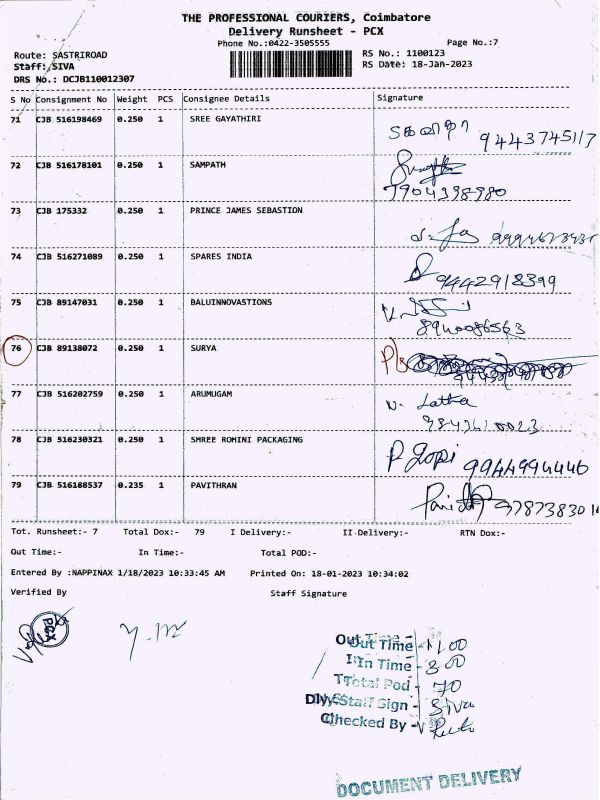 THE PROFESSIONAL COURIERS, Coimbatore
Delivery Runsheet - PCX
Phone No.:0422-3505555
Page No.:7
Route: SASTRIROAD
RS No.: 1100123
Staff: SIVA
RS Date: 18-Jan-2023
DRS No.: DCJB110012307
S No Consignment No Weight PCS Consignee Details Signature
71 CJB 516198469 0.250 1 SREE GAYATHIRI
9443745117
72 CJB 516178101 0.250 1 SAMPATH
7904398980
73 CJB 175332 0.250 1 PRINCE JAMES SEBASTION
74 CJB 516271089 0.250 1 SPARES INDIA
9442918399
75 CJB 89147031 0.250 1 BALUINNOVASTIONS
8940086563
76 CJB 89138072 0.250 1 SURYA
77 CJB 516202759 0.250 1 ARUMUGAM
N. Latha
78 CJB 516230321 0.250 1 SMREE ROMINI PACKAGING
P Gopi 9944994446
79 CJB 516188537 0.235 1 PAVITHRAN
Tot. Runsheet:- 7 Total Dox:- 79 I Delivery:- II Delivery:- RTN Dox:-
Out Time:- In Time:- Total POD:-
Entered By :NAPPINAX 1/18/2023 10:33:45 AM Printed On: 18-01-2023 10:34:02
Verified By Staff Signature
PCX
Out Time - 11.00
In Time - 3.00
Total Pod - 70
Dly.Staff Sign - Siva
Checked By -
DOCUMENT DELIVERY